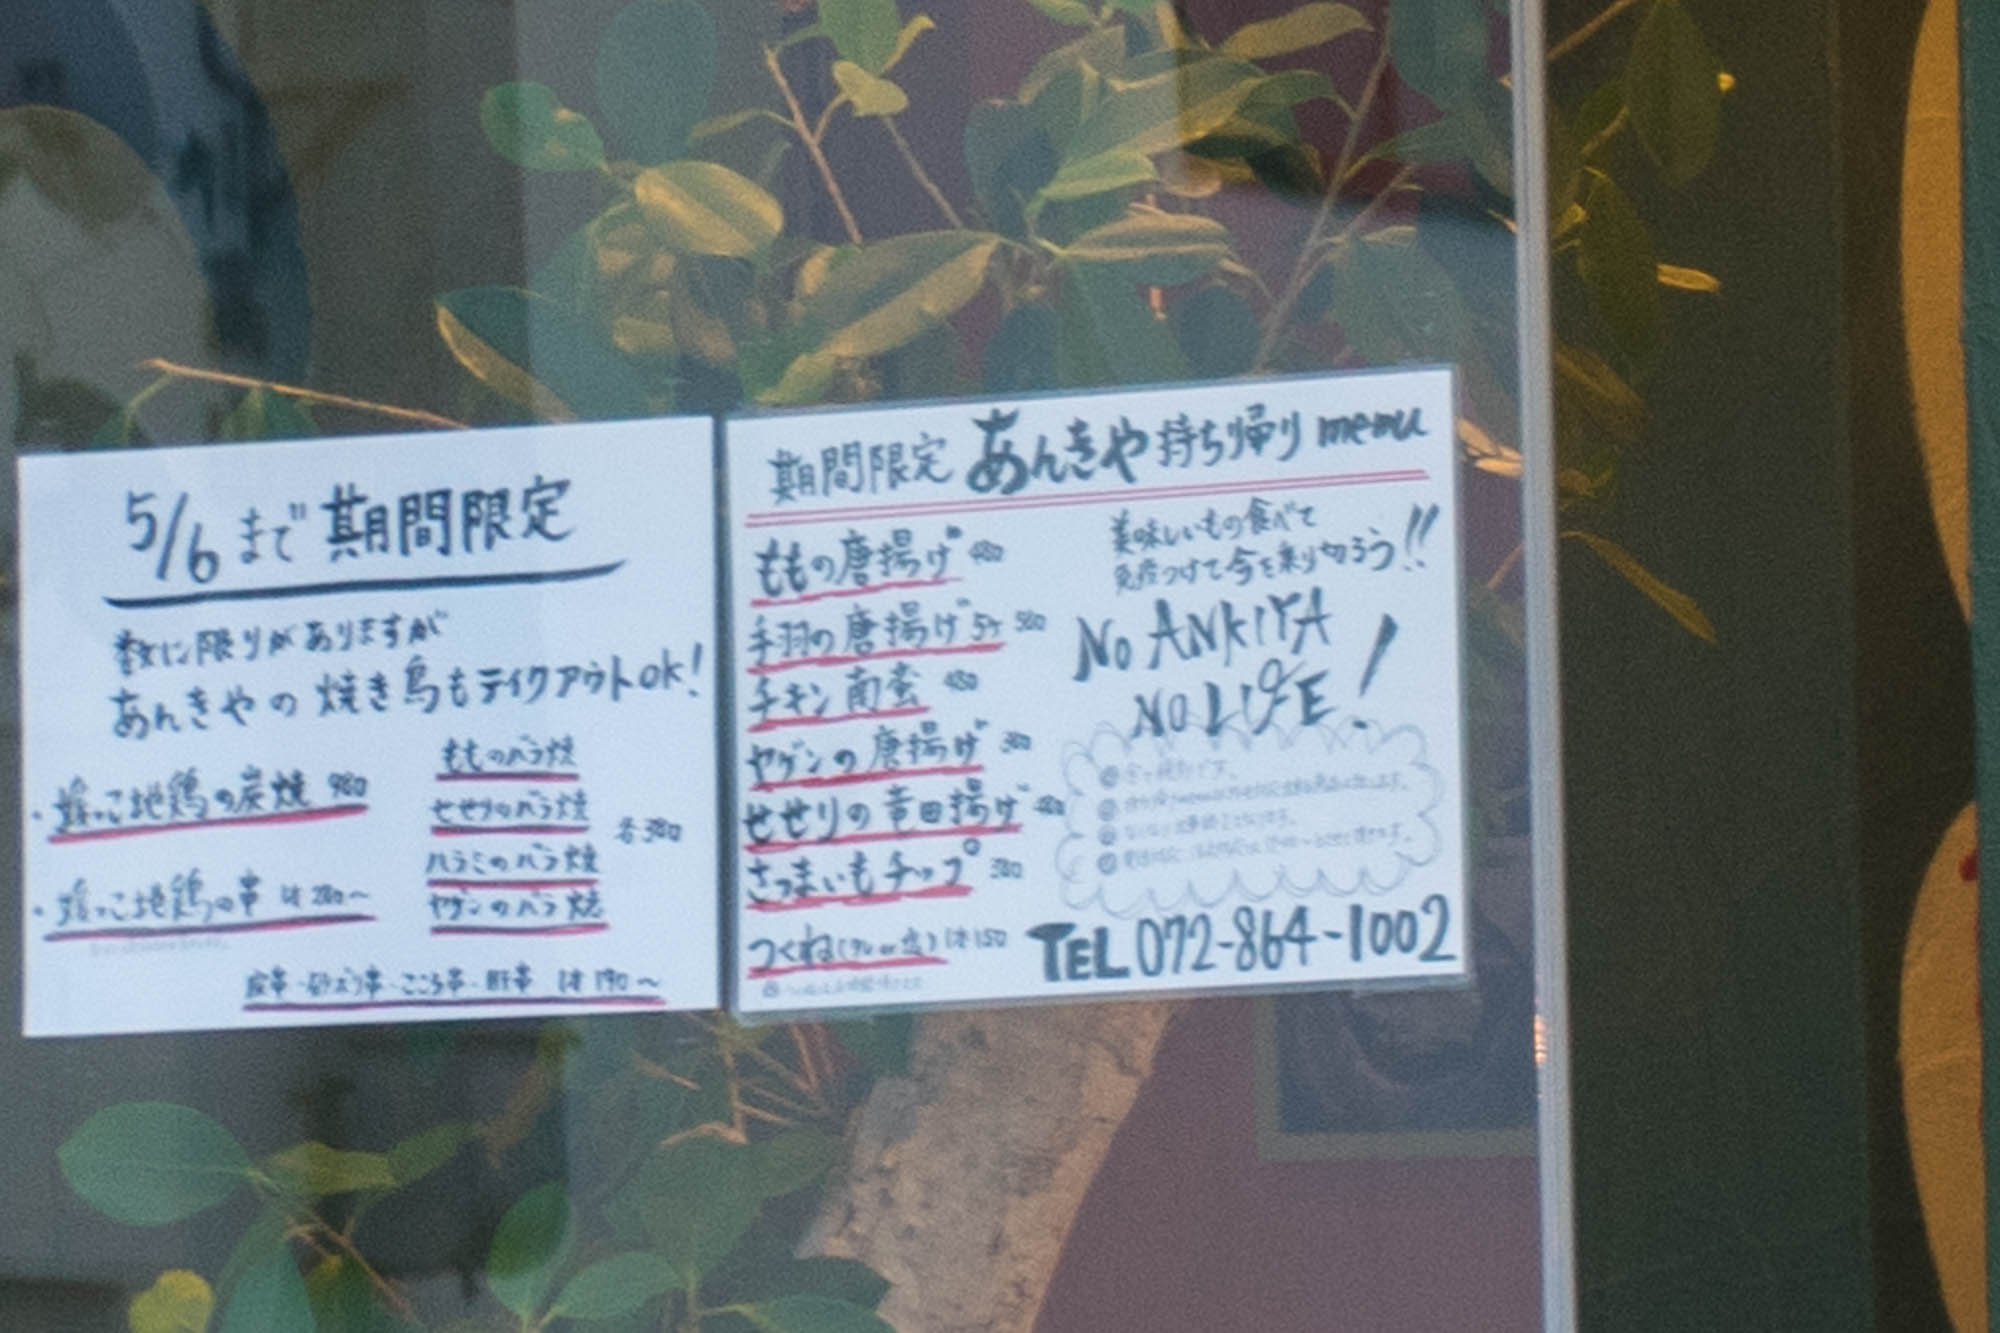 5/6まで期間限定
数に限りがありますが
あんきやの焼き鳥もテイクアウトok!
・っこ地鶏の炭焼 980
・っこ地鶏の串 1本280〜
ももバラ焼
せせりのバラ焼
ハラミのバラ焼
ヤゲンのバラ焼
各380
皮串・砂ずり串・こころ串・肝串 1本190〜
期間限定 あんきや 持ち帰り menu
ももの唐揚げ 480
手羽の唐揚げ 5ヶ 580
チキン南蛮 480
ヤゲンの唐揚げ 380
せせりの竜田揚げ 480
さつまいもチップ 380
つくね(タレor塩) 1本150
美味しいもの食べて
免疫つけて今を乗り切ろう!!
No ANKIYA
NO LIFE!
TEL 072-864-1002